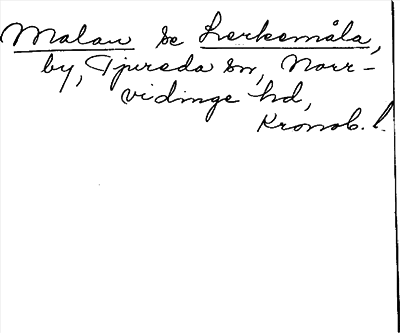 Malau se Lerkemåla,
by, Tjureda sn, Norr-
vidinge hd,
Kronob. l.